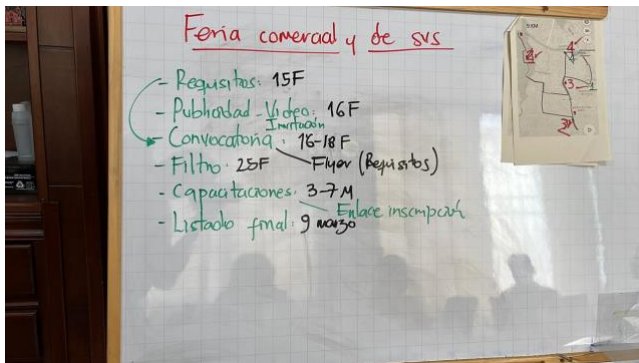 Feria comercial y de svs
- Requisitos: 15F
- Publicidad - Video: 16F
Invitación
- Convocatoria: 16-18 F
- Filtro: 25F
Flyer (Requisitos)
- Capacitaciones: 3-7 M
Enlace inscripción
- Listado final: 9 marzo
2
4
3